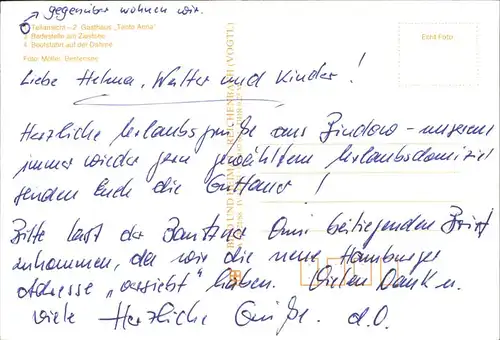 gegenüber wohnen wir.
Teilansicht – 2 Gasthaus „Tante Anna"
Badestelle am Zundsee
4 Bootsfahrt auf der Dahme
Foto: Müller, Bestensee
Echt Foto
Liebe Helma, Walter und Kinder!
Herzliche Urlaubsgrüße aus Bindow – unserem
immer wieder gern gewähltem Urlaubsdomizil
senden Euch die Guttauer!
Bitte lasst der Bautzner Omi beiliegenden Brief
zukommen, da wir die neue Hamburger
Adresse „versiebt" haben. Vielen Dank u.
viele Herzliche Grüße. d.O.
BILD UND HEIMAT REICHENBACH (VOGTL)